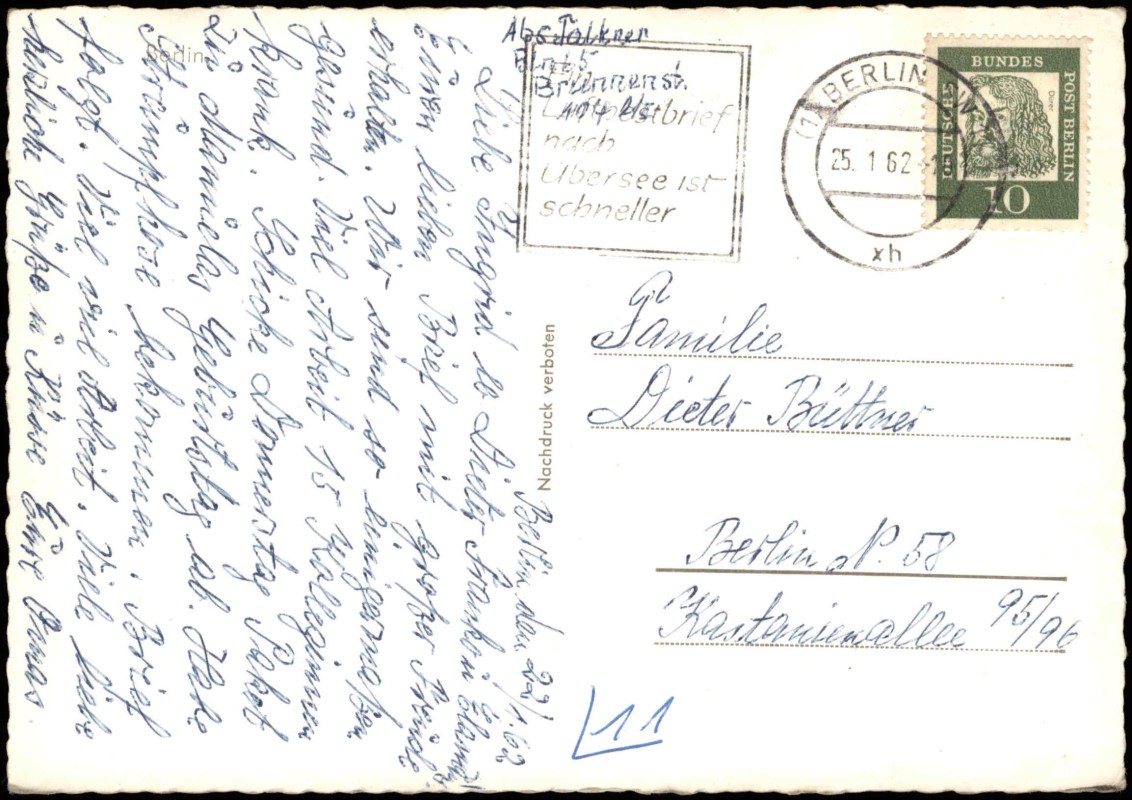 Berlin
Abs Falkner
Brunnenst.
Luftpostbrief
nach
Übersee ist
schneller
BERLIN
25. 1 62
xh
DEUTSCHE
BUNDES
POST BERLIN
Dürer
10
Nachdruck verboten
Familie
Dieter Büttner
Berlin N. 58
Kastanienallee 95/96
11
Berlin den 22/1.62
Liebe Ingrid lb Dieter
Euren lieben Brief mit großer Freude
erhalten. Wir sind so einigermaßen
gesund. Viel Arbeit 15 Kolleginnen
krank. Schicke Donnerstag Paket
zu Manuelas Geburtstag ab. Habe
Strumpfhose bekommen. Brief
folgt. Viel viel Arbeit. Viele liebe
herzliche Grüße u Küsse Eure Omas